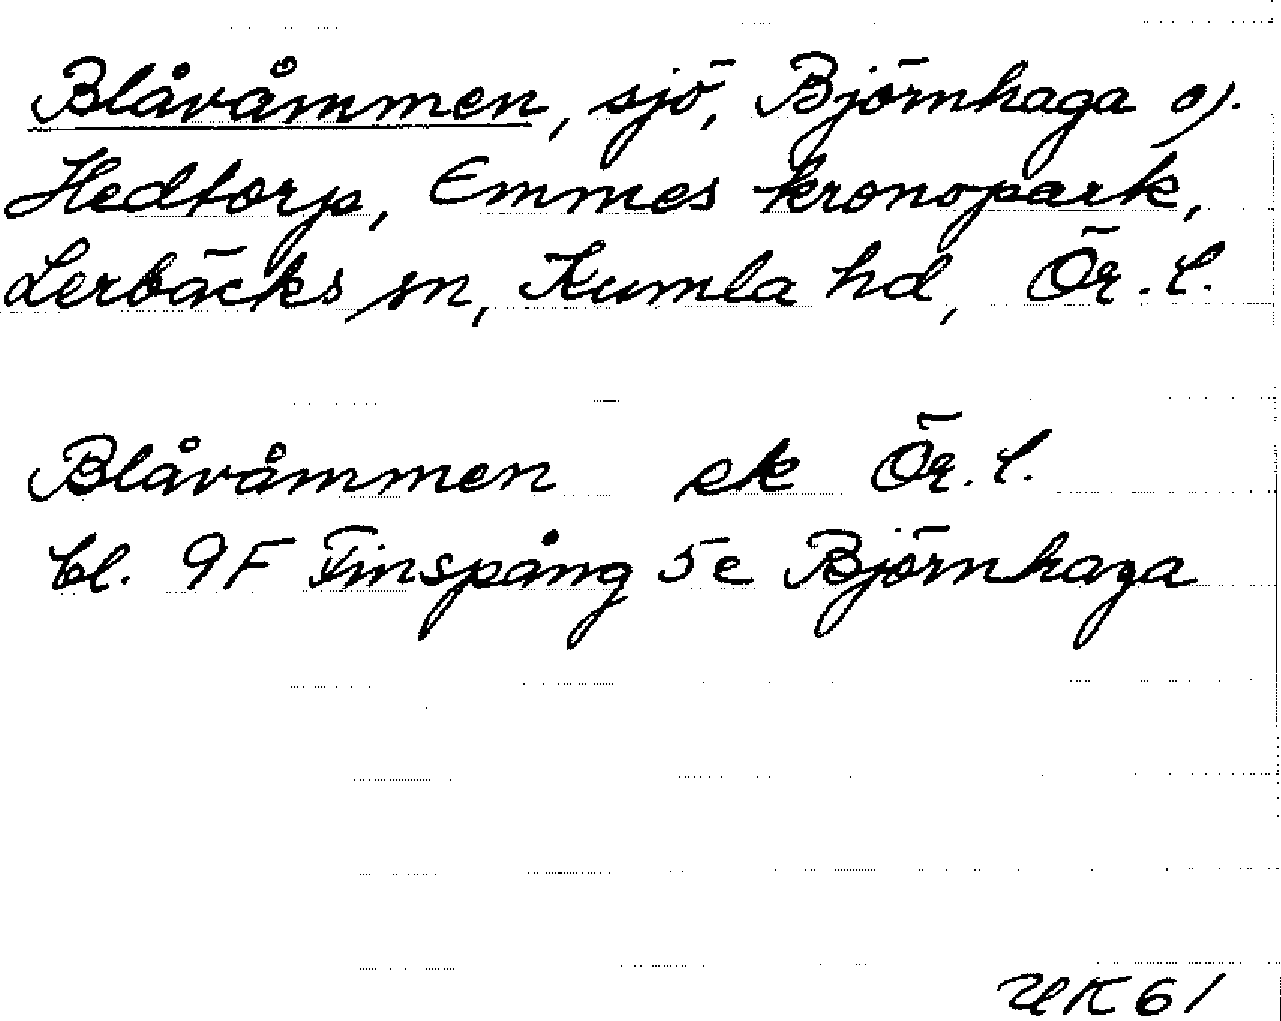 Blåvåmmen, sjö, Björnhaga o).
Hedtorp, Emmes kronopark,
Lerbäcks sn, Kumla hd, Ör. l.
Blåvåmmen ek Ör. l.
bl. 9F Finspång 5e Björnhaga
UK 61